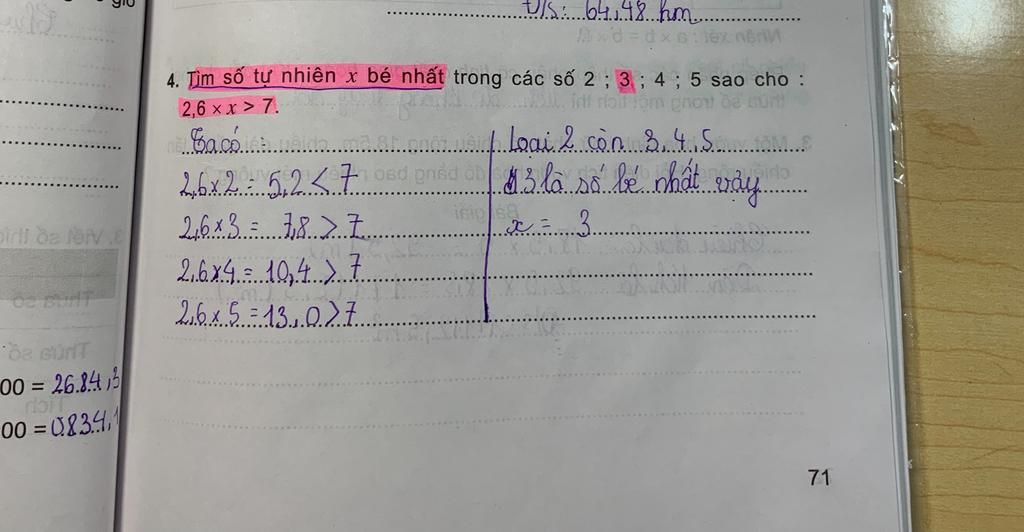 Đ/S: 64,48 km
4. Tìm số tự nhiên x bé nhất trong các số 2 ; 3 ; 4 ; 5 sao cho :
2,6 × x > 7.
Ta có :
2,6 x 2 = 5,2 < 7
2,6 x 3 = 7,8 > 7
2,6 x 4 = 10,4 > 7
2,6 x 5 = 13,0 > 7
Loại 2 còn 3, 4, 5.
3 là số bé nhất vậy
x = 3
00 = 26.84,3
00 = 0.834,1
71